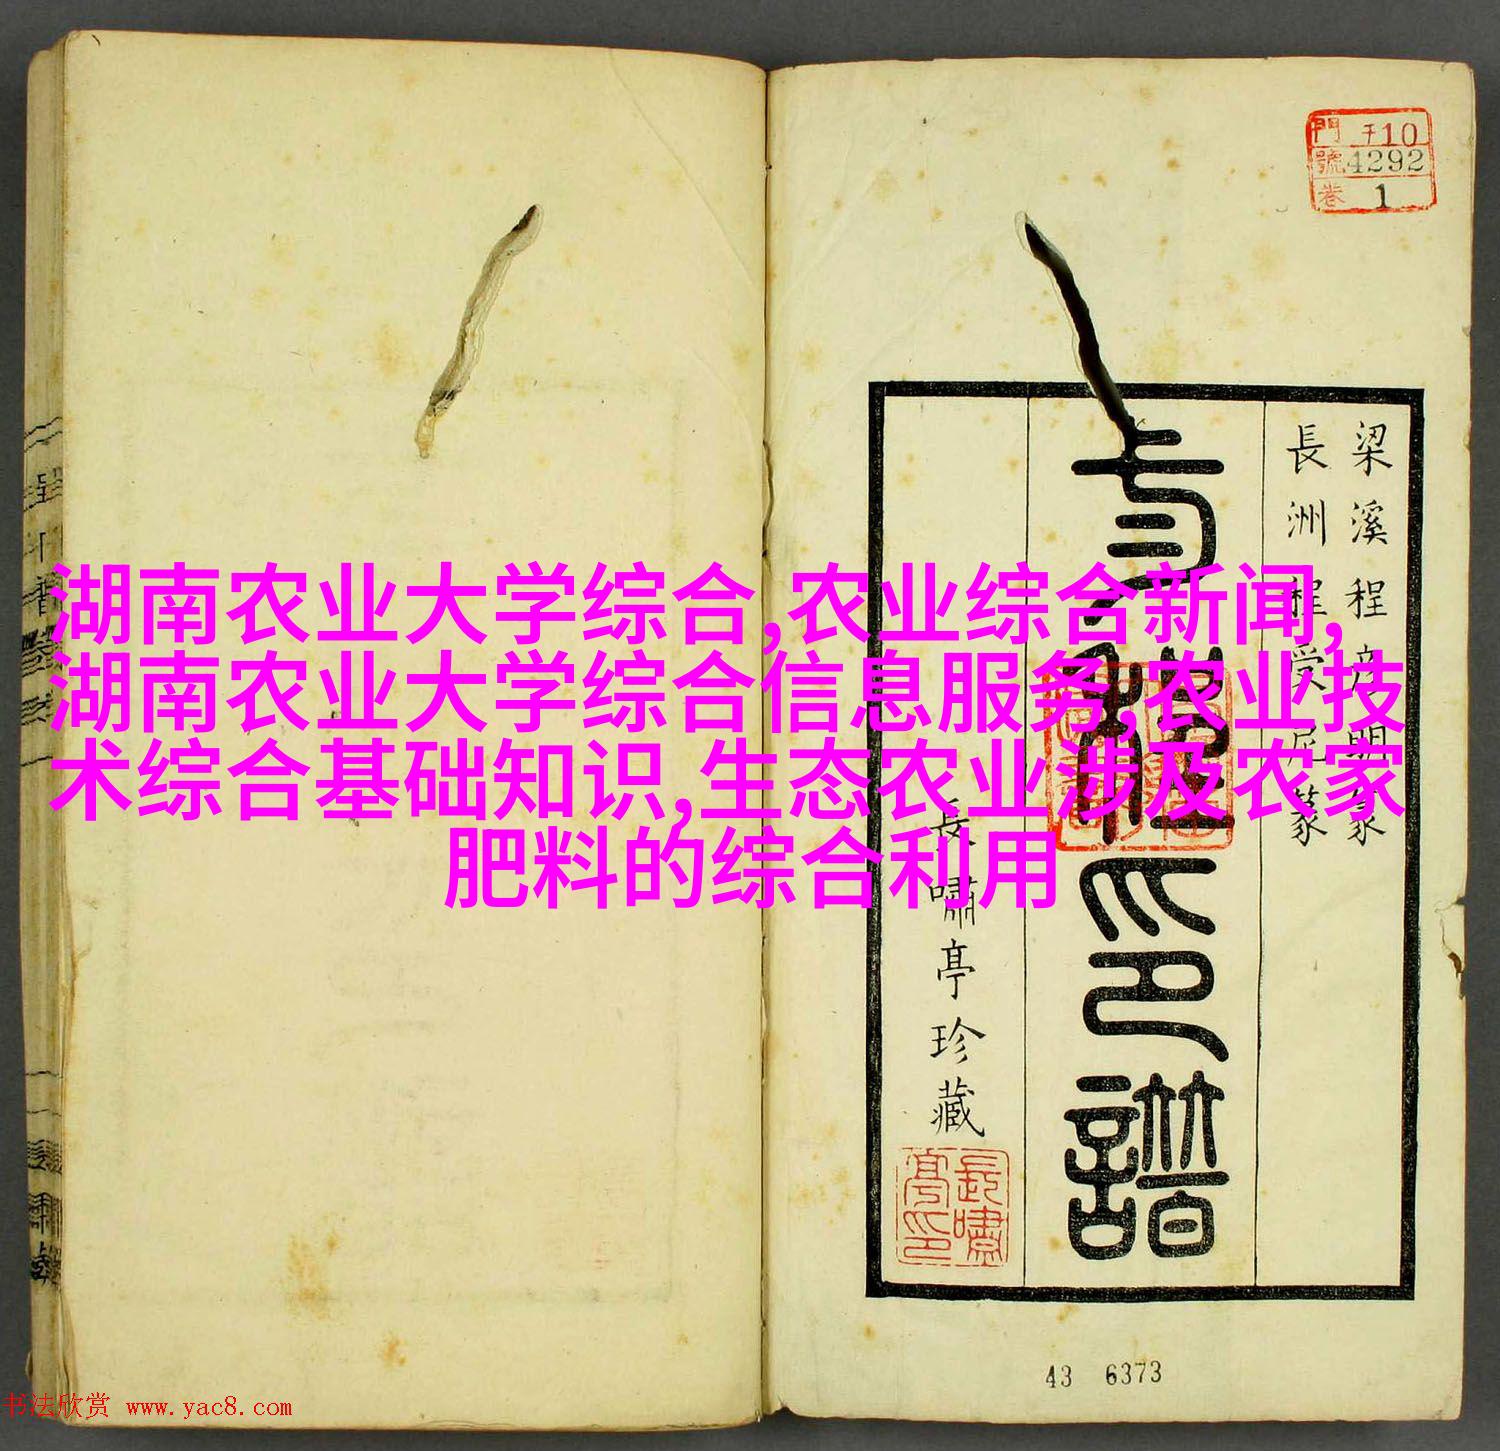 門 于10
號 4292
卷 1
梁溪程彦明篆
長洲程受尼篆
考槃印譜
長嘯亭珍藏
長嘯亭印
湖南农业大学综合,农业综合新闻,
湖南农业大学综合信息服务,农业技
术综合基础知识,生态农业涉及农家
肥料的综合利用
43 6373
书法欣赏 www.yac8.com